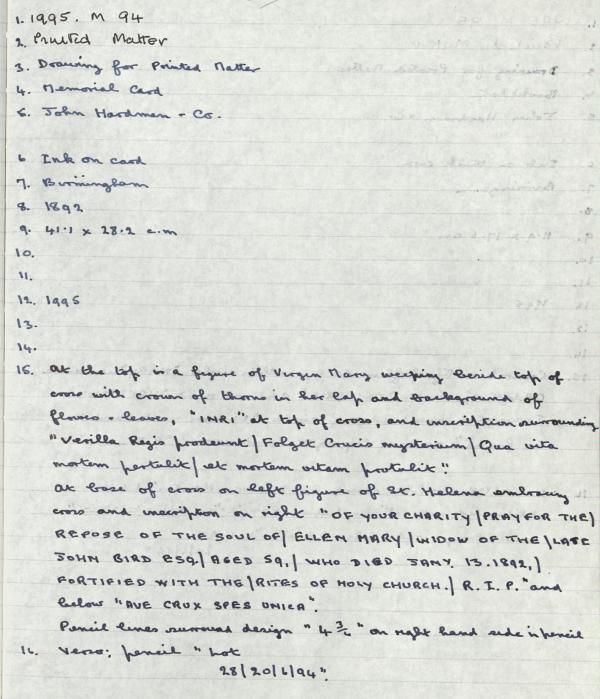 1. 1995. M 94
2. Printed Matter
3. Drawing for Printed Matter
4. Memorial Card
5. John Hardman + Co.
6. Ink on card
7. Birmingham
8. 1892
9. 41.1 x 28.2 c.m
10.
11.
12. 1995
13.
14.
15. At the top is a figure of Virgin Mary weeping beside top of
cross with crown of thorns in her lap and background of
flowers + leaves, "INRI" at top of cross, and inscription surrounding
"Vexilla Regis prodeunt | Folget Crucis mysterium | Qua vita
mortem pertulit | et mortem vitam protulit".
At base of cross on left figure of St. Helena embracing
cross and inscription on right "OF YOUR CHARITY | PRAY FOR THE |
REPOSE OF THE SOUL OF | ELLEN MARY | WIDOW OF THE | LATE
JOHN BIRD ESQ. | AGED 59, | WHO DIED JANY. 13. 1892, |
FORTIFIED WITH THE | RITES OF HOLY CHURCH. | R. I. P." and
below "AVE CRUX SPES UNICA".
Pencil lines surround design "4 3/4" on right hand side in pencil
16. Verso: pencil "
28/20/6/94".